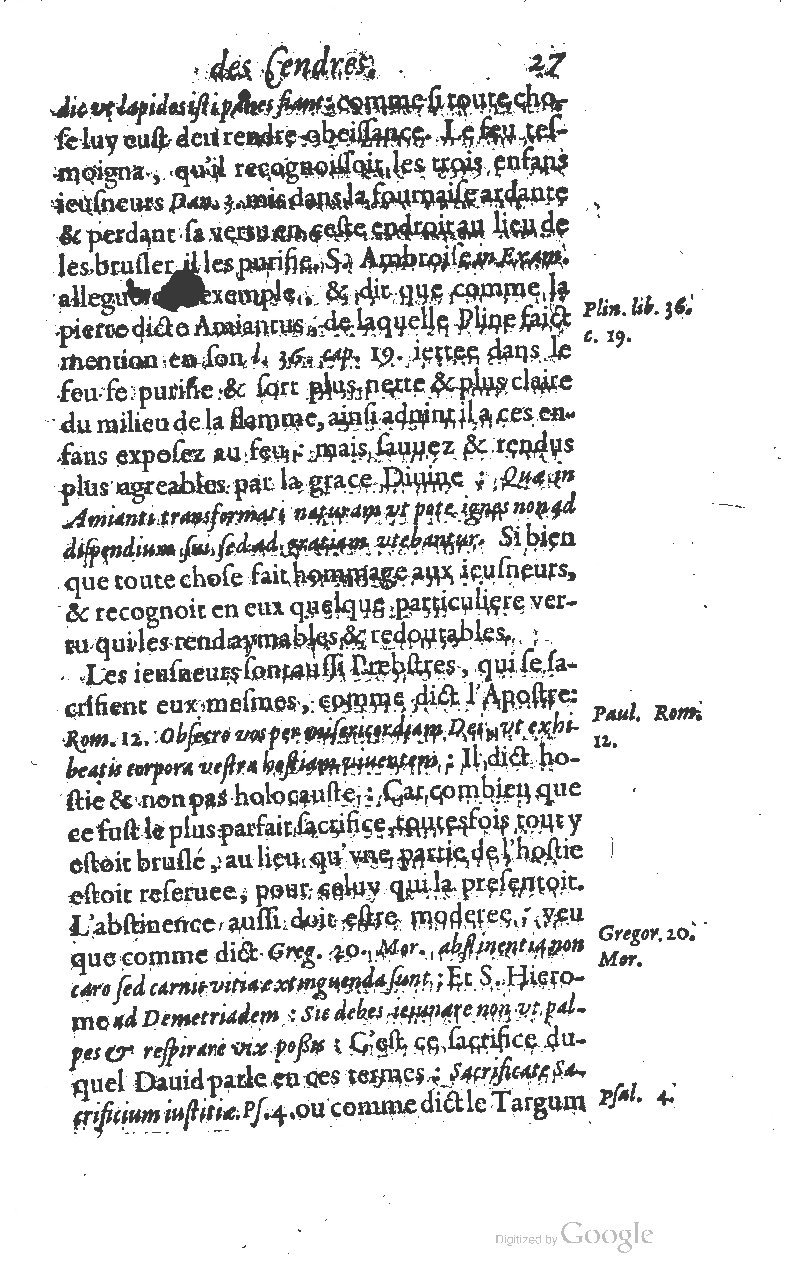 des Cendres. 27
dic vt lapides isti panes fiant: comme si toute cho-
se luy eust deu rendre obeissance. Le feu tes-
moigna, qu'il recognoissoit les trois enfans
ieusneurs Dan. 3. mis dans la fournaise ardante
& perdant sa vertu en ceste endroit au lieu de
les brusler il les purifie. S. Ambroise in Exam.
allegue exemple, & dit que comme la
pierre dicte Amiantus, de laquelle Pline faict
Plin. lib. 36.
c. 19.
mention en son l. 36. cap. 19. iettee dans le
feu se purifie & sort plus nette & plus claire
du milieu de la flamme, ainsi aduint il a ces en-
fans exposez au feu: mais sauuez & rendus
plus agreables par la grace Diuine; Qua in
Amianti transformati naturam vt pote ignes non ad
dispendium sui sed ad gratiam vtebantur. Si bien
que toute chose fait hommage aux ieusneurs,
& recognoit en eux quelque particuliere ver-
tu qui les rend aymables & redoutables.
Les ieusneurs sont aussi Prebstres, qui se sa-
crifient eux mesmes, comme dict l'Apostre:
Paul. Rom.
12.
Rom. 12. Obsecro vos per misericordiam Dei, vt exhi-
beatis corpora vestra hostiam viuentem: Il dict ho-
stie & non pas holocauste: Car combien que
ce fust le plus parfait sacrifice, toutesfois tout y
estoit bruslé, au lieu qu'vne partie de l'hostie
estoit reseruee, pour celuy qui la presentoit.
L'abstinence aussi doit estre moderee; veu
Gregor. 20.
Mor.
que comme dict Greg. 20. Mor. abstinentia non
caro sed carnis vitia extinguenda sunt; Et S. Hiero-
me ad Demetriadem: Sic debes ieiunare non vt pal-
pes & respirare vix possis: C'est ce sacrifice du-
quel Dauid parle en ces termes: Sacrificate Sa-
crificium iustitiæ. Ps. 4. ou comme dict le Targum
Psal. 4.
Digitized by Google